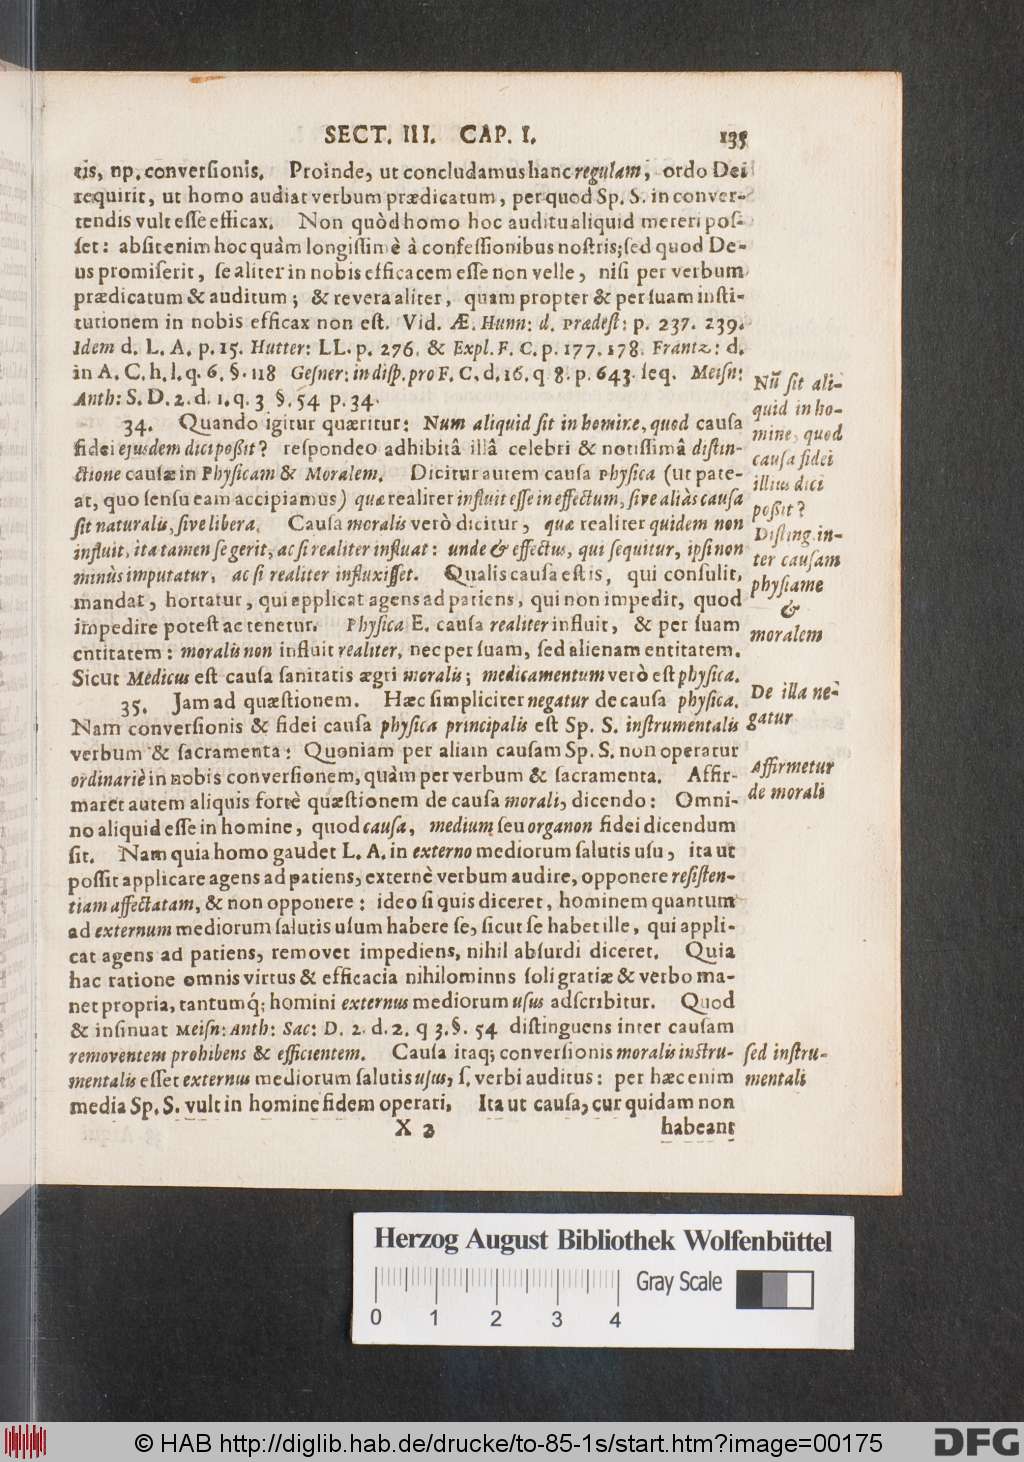 SECT. III. CAP. I. 135
tis, np. conversionis. Proinde, ut concludamus hanc regulam, ordo Dei
requirit, ut homo audiat verbum prædicatum, per quod Sp. S. in conver-
tendis vult esse efficax. Non quòd homo hoc auditu aliquid mereri pos-
set: absit enim hoc quàm longissimè à confessionibus nostris; sed quod De-
us promiserit, se aliter in nobis efficacem esse non velle, nisi per verbum
prædicatum & auditum; & revera aliter, quam propter & per suam insti-
tutionem in nobis efficax non est. Vid. Æ. Hunn: d. Prædest: p. 237. 239.
Idem d. L. A. p. 15. Hutter: LL. p. 276. & Expl. F. C. p. 177. 178. Frantz: d.
in A. C. h. l. q. 6. §. 118 Gesner: in disp. pro F. C. d. 16. q 8. p. 643. seq. Meisn:
Anth: S. D. 2. d. 1. q. 3 §. 54 p. 34.
34. Quando igitur quæritur: Num aliquid sit in homine, quod causa
fidei ejusdem dici poßit? respondeo adhibitâ illâ celebri & notissimâ distin-
ctione causæ in Physicam & Moralem. Dicitur autem causa Physica (ut pate-
at, quo sensu eam accipiamus) quæ realiter influit esse in effectum, sive aliàs causa
sit naturalis, sive libera. Causa moralis verò dicitur, quæ realiter quidem non
influit, ita tamen se gerit, ac si realiter influat: unde & effectus, qui sequitur, ipsi non
minùs imputatur, ac si realiter influxisset. Qualis causa est is, qui consulit,
mandat, hortatur, qui applicat agens ad patiens, qui non impedit, quod
impedire potest ac tenetur. Physica E. causa realiter influit, & per suam
entitatem: moralis non influit realiter, nec per suam, sed alienam entitatem.
Sicut Medicus est causa sanitatis ægri moralis; medicamentum verò est physica.
35. Jam ad quæstionem. Hæc simpliciter negatur de causa physica.
Nam conversionis & fidei causa physica principalis est Sp. S. instrumentalis
verbum & sacramenta: Quoniam per aliam causam Sp. S. non operatur
ordinariè in nobis conversionem, quàm per verbum & sacramenta. Affir-
maret autem aliquis fortè quæstionem de causa morali, dicendo: Omni-
no aliquid esse in homine, quod causa, medium seu organon fidei dicendum
sit. Nam quia homo gaudet L. A. in externo mediorum salutis usu, ita ut
possit applicare agens ad patiens, externè verbum audire, opponere resisten-
tiam affectatam, & non opponere: ideo si quis diceret, hominem quantum
ad externum mediorum salutis usum habere se, sicut se habet ille, qui appli-
cat agens ad patiens, removet impediens, nihil absurdi diceret. Quia
hac ratione omnis virtus & efficacia nihilominus soli gratiæ & verbo ma-
net propria, tantumq́; homini externus mediorum usus adscribitur. Quod
& insinuat Meisn: Anth: Sac: D. 2. d. 2. q 3. §. 54 distinguens inter causam
removentem prohibens & efficientem. Causa itaq; conversionis moralis instru-
mentalis esset externus mediorum salutis usus, s. verbi auditus: per hæc enim
media Sp. S. vult in homine fidem operari. Ita ut causa, cur quidam non
X 2 habeant
Nũ sit ali-
quid in ho-
mine, quod
causa fidei
illius dici
poßit?
Disting. in-
ter causam
physicam
&
moralem
De illa ne-
gatur
Affirmetur
de morali
sed instru-
mentali
Herzog August Bibliothek Wolfenbüttel
Gray Scale
0 1 2 3 4
© HAB http://diglib.hab.de/drucke/to-85-1s/start.htm?image=00175
DFG